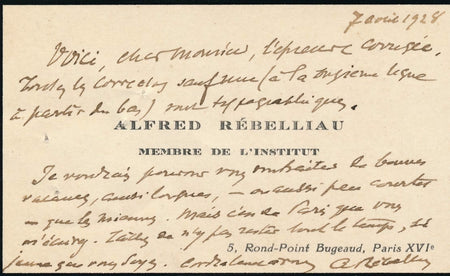 7 avril 1928
Voici, cher Maurice, l'épreuve corrigée.
Toutes les corrections sauf une (à la onzième ligne
à partir du bas) sont typographiques.
ALFRED RÉBELLIAU
MEMBRE DE L'INSTITUT
Je voudrais pouvoir vous souhaiter de bonnes
vacances, aussi longues, – ou aussi peu courtes
– que les miennes. Mais c'est de Paris que vous
m'écrivez. Tâchez de n'y pas rester tout le temps, si
jeune que vous soyez. Cordialement vôtre A Rébelliau
5, Rond-Point Bugeaud, Paris XVIe